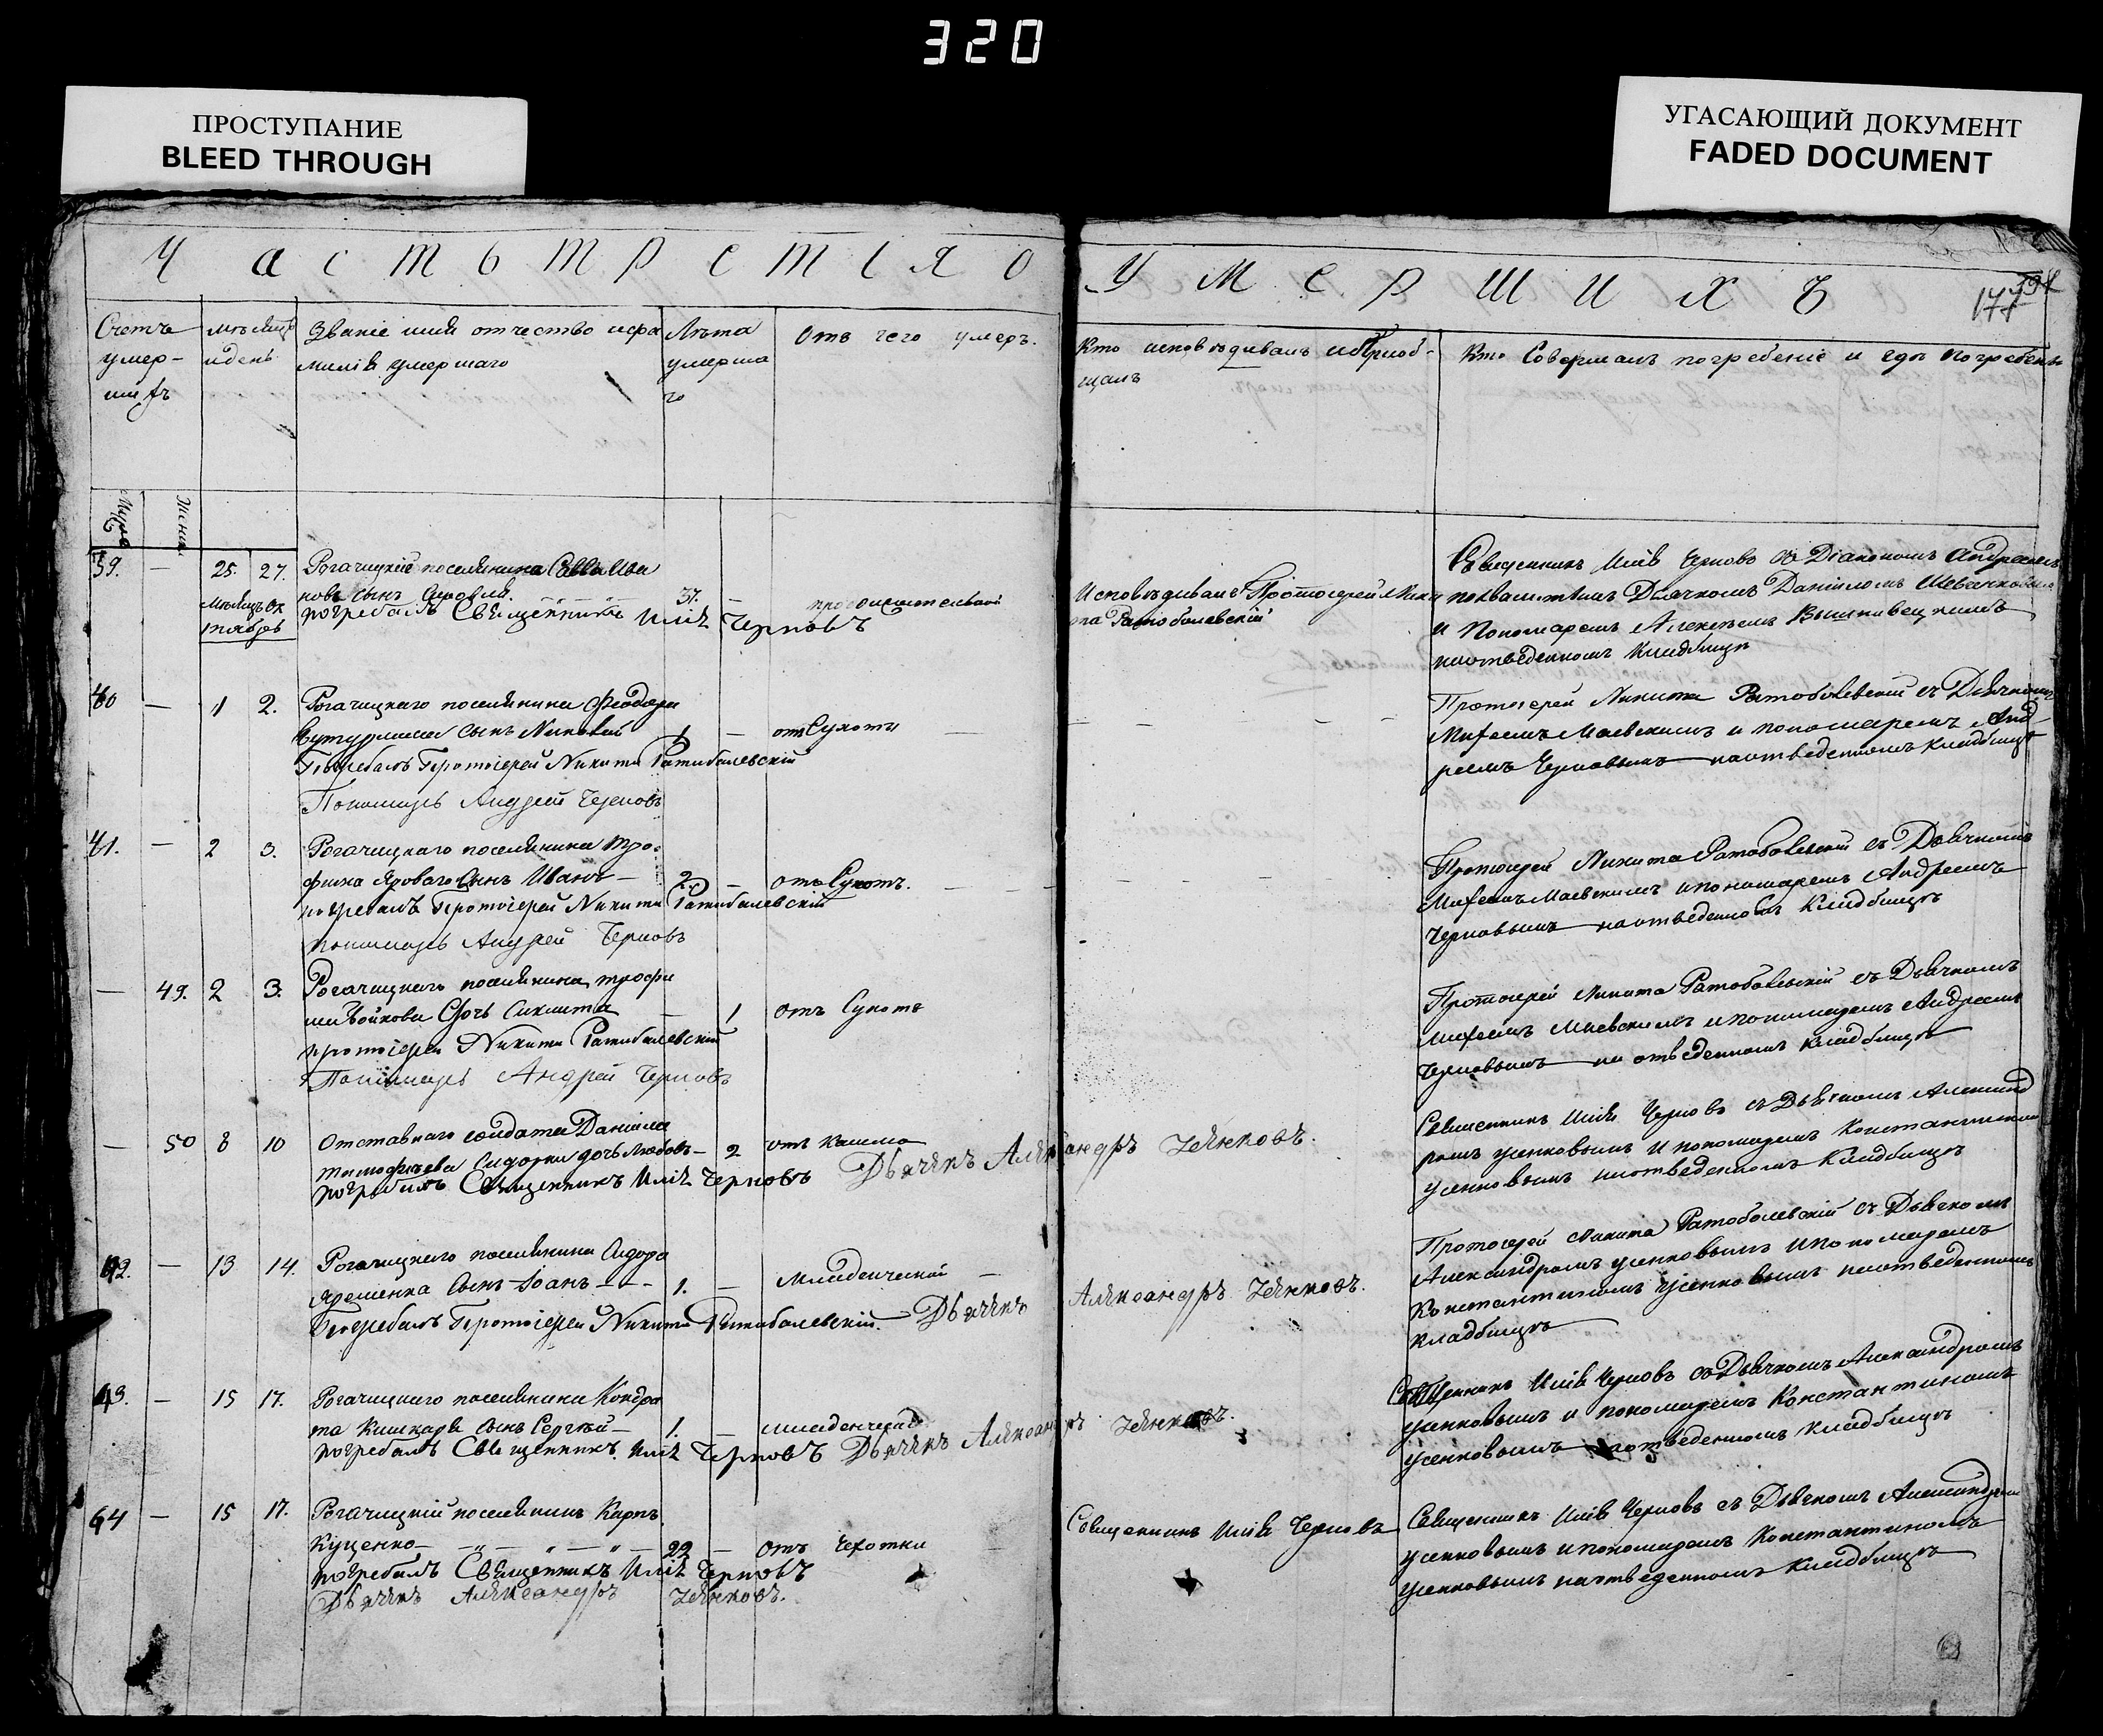 320
ПРОСТУПАНИЕ
BLEED THROUGH
УГАСАЮЩИЙ ДОКУМЕНТ
FADED DOCUMENT
Часть третія о умершихъ
177
Счетъ умер-шихъ
мѣсяцъ и день
Званіе имя отчество и фамилія умершаго
Лѣта умершаго
Отъ чего умеръ.
Кто исповѣдывалъ и пріобщалъ
Кто Совершалъ погребеніе и где погребенъ
39. — 25. 27.
Савва Ива
новъ сынъ
37. —
погребалъ Священникъ Илія Черновъ
Исповѣдивалъ Протоіерей Ники
та Ратоболевскій
Священникъ Илія Черновъ съ Діакономъ Андреемъ
Дьячкомъ Даніиломъ
и Пономаремъ Алексѣемъ
наотведенномъ кладбищѣ
Мѣсяцъ Ок
тябрь
40 — 1 2.
Рогачицкаго поселянина Феодора
сынъ Николай 1 — отСухоты
Погребалъ Протоіерей Никита Ратиболевскій
Пономарь Андрей Черновъ
Протоіерей Никита Ратоболевскій съ Дьячкомъ
Михеемъ Маевскимъ и пономаремъ Анд-
реемъ Черновымъ наотведенномъ кладбищѣ
41. — 2 3.
Рогачицкаго поселянина Тро-
фима Яроваго Сынъ Иванъ — 2 — отъ Сухотъ.
погребалъ Протоіерей Никита Ратиболевскій
пономарь Андрей Черновъ
Протоіерей Никита Ратоболевскій съ Дьячкомъ
Михеемъ Маевскимъ ипономаремъ Андреемъ
Черновымъ наотведенномъ кладбищѣ
— 49. 2 3.
Рогачицкаго поселянина трофи
ма Бойкова дочь — 1 отъ Сухотъ
протоіерей Никита Ратиболевскій
Пономарь Андрей Черновъ
Протоіерей Никита Ратоболевскій съ Дьячкомъ
Михеемъ Маевскимъ ипономаремъ Андреемъ
Черновымъ на отведенномъ кладбищѣ
— 50 8 10
Отставнаго солдата Даніила
тимофѣева дочь Любовь — 2 отъ кашлю
погребалъ Священникъ Илія Черновъ Дьячекъ Александръ Усенковъ.
Священникъ Илія Черновъ съ Дьячкомъ Александ
ромъ усенковымъ и пономаремъ Константиномъ
усенковымъ наотведенномъ Кладбищѣ
42. — 13 14.
Рогачицкаго поселянина Сидора
Яременка Сынъ Іоанъ — 1. — младенческой —
Погребалъ Протоіерей Никита Ратиболевскій. Дьячекъ Александръ Усенковъ.
Протоіерей Никита Ратоболевскій съ Дьячкомъ
Александромъ усенковымъ ипономаремъ
Константиномъ усенковымъ наотведенномъ
кладбищѣ
43. — 15 17.
Рогачицкаго поселянина Кондра
та сынъ Сергѣй — 1. — младенческой
погребалъ Священникъ Илія Черновъ Дьячекъ Александръ Усенковъ.
Священникъ Илія Черновъ съ Дьячкомъ Александромъ
усенковымъ и пономаремъ Константиномъ
усенковымъ наотведенномъ кладбищѣ
44 — 15 17.
Рогачицкій поселянинъ Карпъ
Куценко — 22 — отъ Чехотки
погребалъ Священникъ Илія Черновъ
Дьячекъ Александръ Усенковъ.
Священникъ Илія Черновъ
Священникъ Илія Черновъ съ Дьячкомъ Александромъ
усенковымъ ипономаремъ Константиномъ
усенковымъ наотведенномъ Кладбищѣ